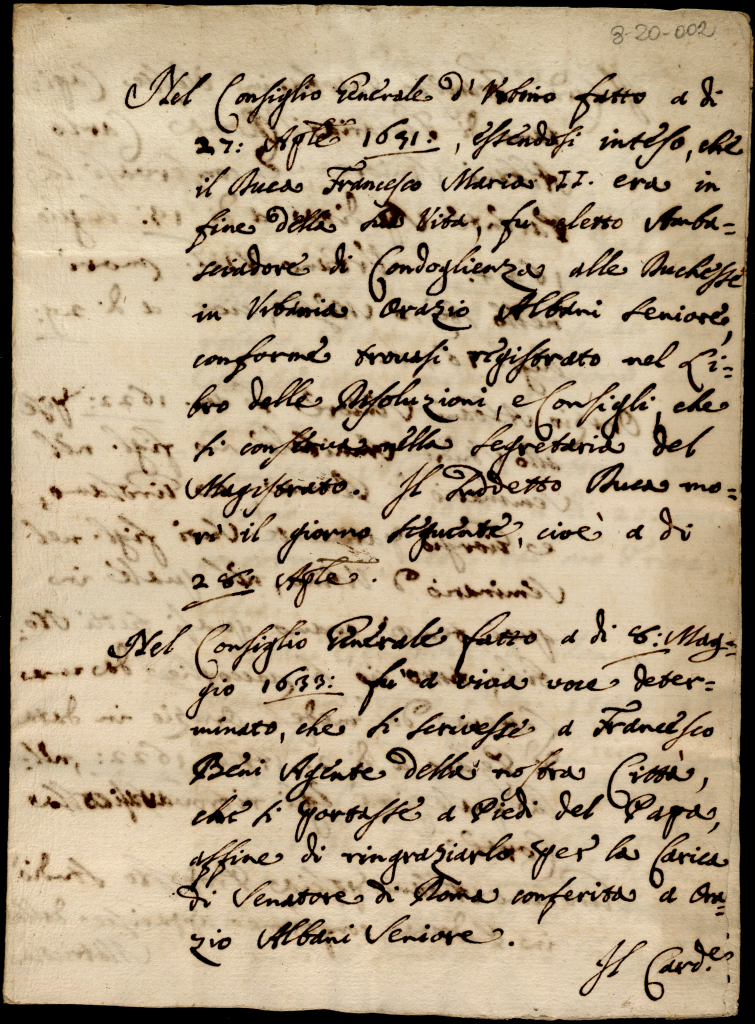 8-20-002
Nel Consiglio Generale d'Urbino fatto a di
27: Aple 1631:, essendosi inteso, che
il Duca Francesco Maria II. era in
fine della sua Vita, fu eletto Amba=
sciadore di Condoglienza alle Duchesse
in Urbania Orazio Albani Seniore,
conforme trovasi registrato nel Li=
bro delle Risoluzioni, e Consigli, che
si conserva nella Segretaria del
Magistrato. Il Suddetto Duca mo=
rì il giorno seguente, cioè a di
28 Aple.
Nel Consiglio Generale fatto a di 8: Mag=
gio 1633: fu a viva voce deter=
minato, che si scrivesse a Francesco
Beni Agente della nostra Città,
che si portasse a Piedi del Papa,
affine di ringraziarlo per la Carica
di Senatore di Roma conferita a Ora=
zio Albani Seniore.
Il Card.e